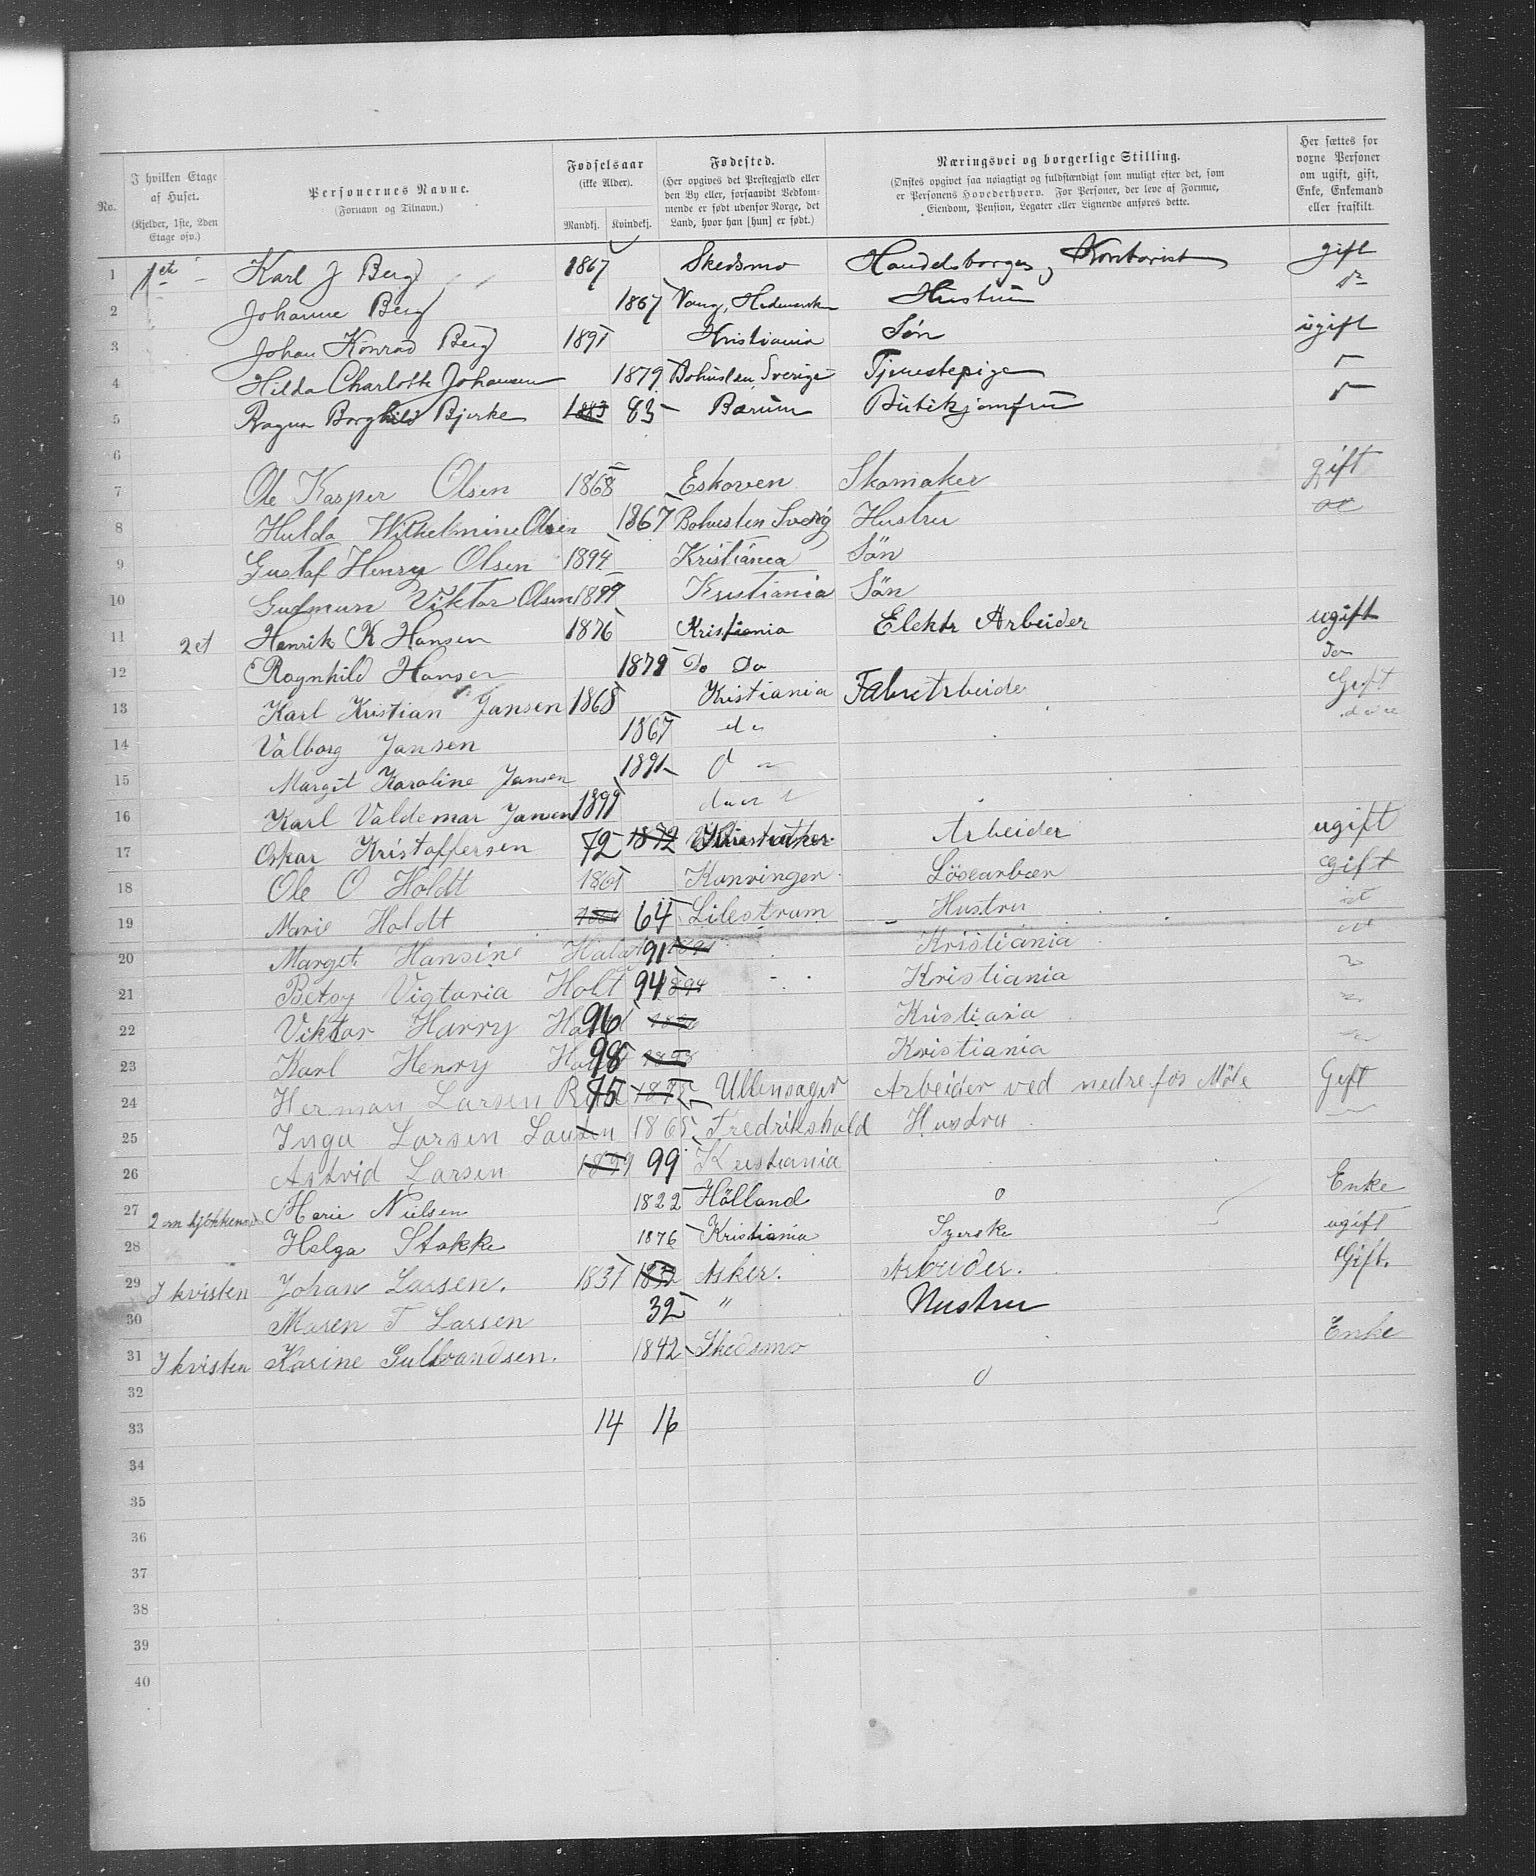 No.
I hvilken Etage af Huset. (Kjelder, 1ste, 2den Etage osv.)
Personernes Navne. (Fornavn og Tilnavn.)
Fødselsaar (ikke Alder). Mandkj. Kvindekj.
Fødested. (Her opgives det Prestegjæld eller den By eller, forsaavidt Vedkommende er født udenfor Norge, det Land, hvor han [hun] er født.)
Næringsvei og borgerlige Stilling. (Ønskes opgivet saa nøiagtigt og fuldstændigt som muligt efter det, som er Personens Hovederhverv. For Personer, der leve af Formue, Eiendom, Pension, Legater eller Lignende anføres dette.
Her sættes for voxne Personer om ugift, gift, Enke, Enkemand eller fraskilt.
1 1 et Karl J Berg 1867 Skedsmo Handelsborger, Kontorist gift
2 Johanne Berg 1867 Vang, Hedemarken Hustru do
3 Johan Konrad Berg 1891 Kristiania Søn ugift
4 Hilda Charlotte Johansen 1879 Bohuslen, Sverige Tjenestepige
5 Ragna Borghild Bjerke 1883 83 Bærum Butikjomfru
6
7 Ole Kasper Olsen 1868 Eskoven Skomaker gift
8 Hulda Wilhelmine Olsen 1867 Bohuslen Sverig Hustru
9 Gustaf Henry Olsen 1894 Kristiania Sön
10 Gudmun Viktor Olsen 1899 Kristiania Sön
11 2 et Henrik K Hansen 1876 Kristiania Elektr Arbeider ugift
12 Ragnhild Hansen 1879 Do Do Do
13 Karl Kristian Jansen 1868 Kristiania Gift
14 Valborg Jansen 1867 do
15 Margit Karoline Jansen 1891
16 Karl Valdemar Jansen 1899
17 Oskar Kristoffersen 72 1872 Arbeider ugift
18 Ole O Holdt 1861 Kunvinger Lösearbær gift
19 Marie Holdt 64 Lilestrøm Hustru
20 Margit Hansine 91 1891 Kristiania
21 Betsy Vigtaria Holt 94 1894 Kristiania
22 Viktor Harry 96 1896 Kristiania
23 Karl Henry 98 1898 Kristiania
24 Herman Larsen 75 1875 Ullensager Arbeider ved nedre fos Möle Gift
25 Inga Larsen 1865 Fredrikshald Husdru
26 Astvid Larsen 1899 99 Kristiania
27 2 Marie Nielsen 1822 Hölland o Enke
28 Helga Stokke 1876 Kristiania Syerske ugift
29 I kvisten Johan Larsen. 1831 1832 Asker. Arbeider. Gift.
30 Maren T Larsen 32 " Hustru
31 I kvisten Karine Gulbrandsen. 1842 Skedsmo o Enke
32
33 14 16
34
35
36
37
38
39
40